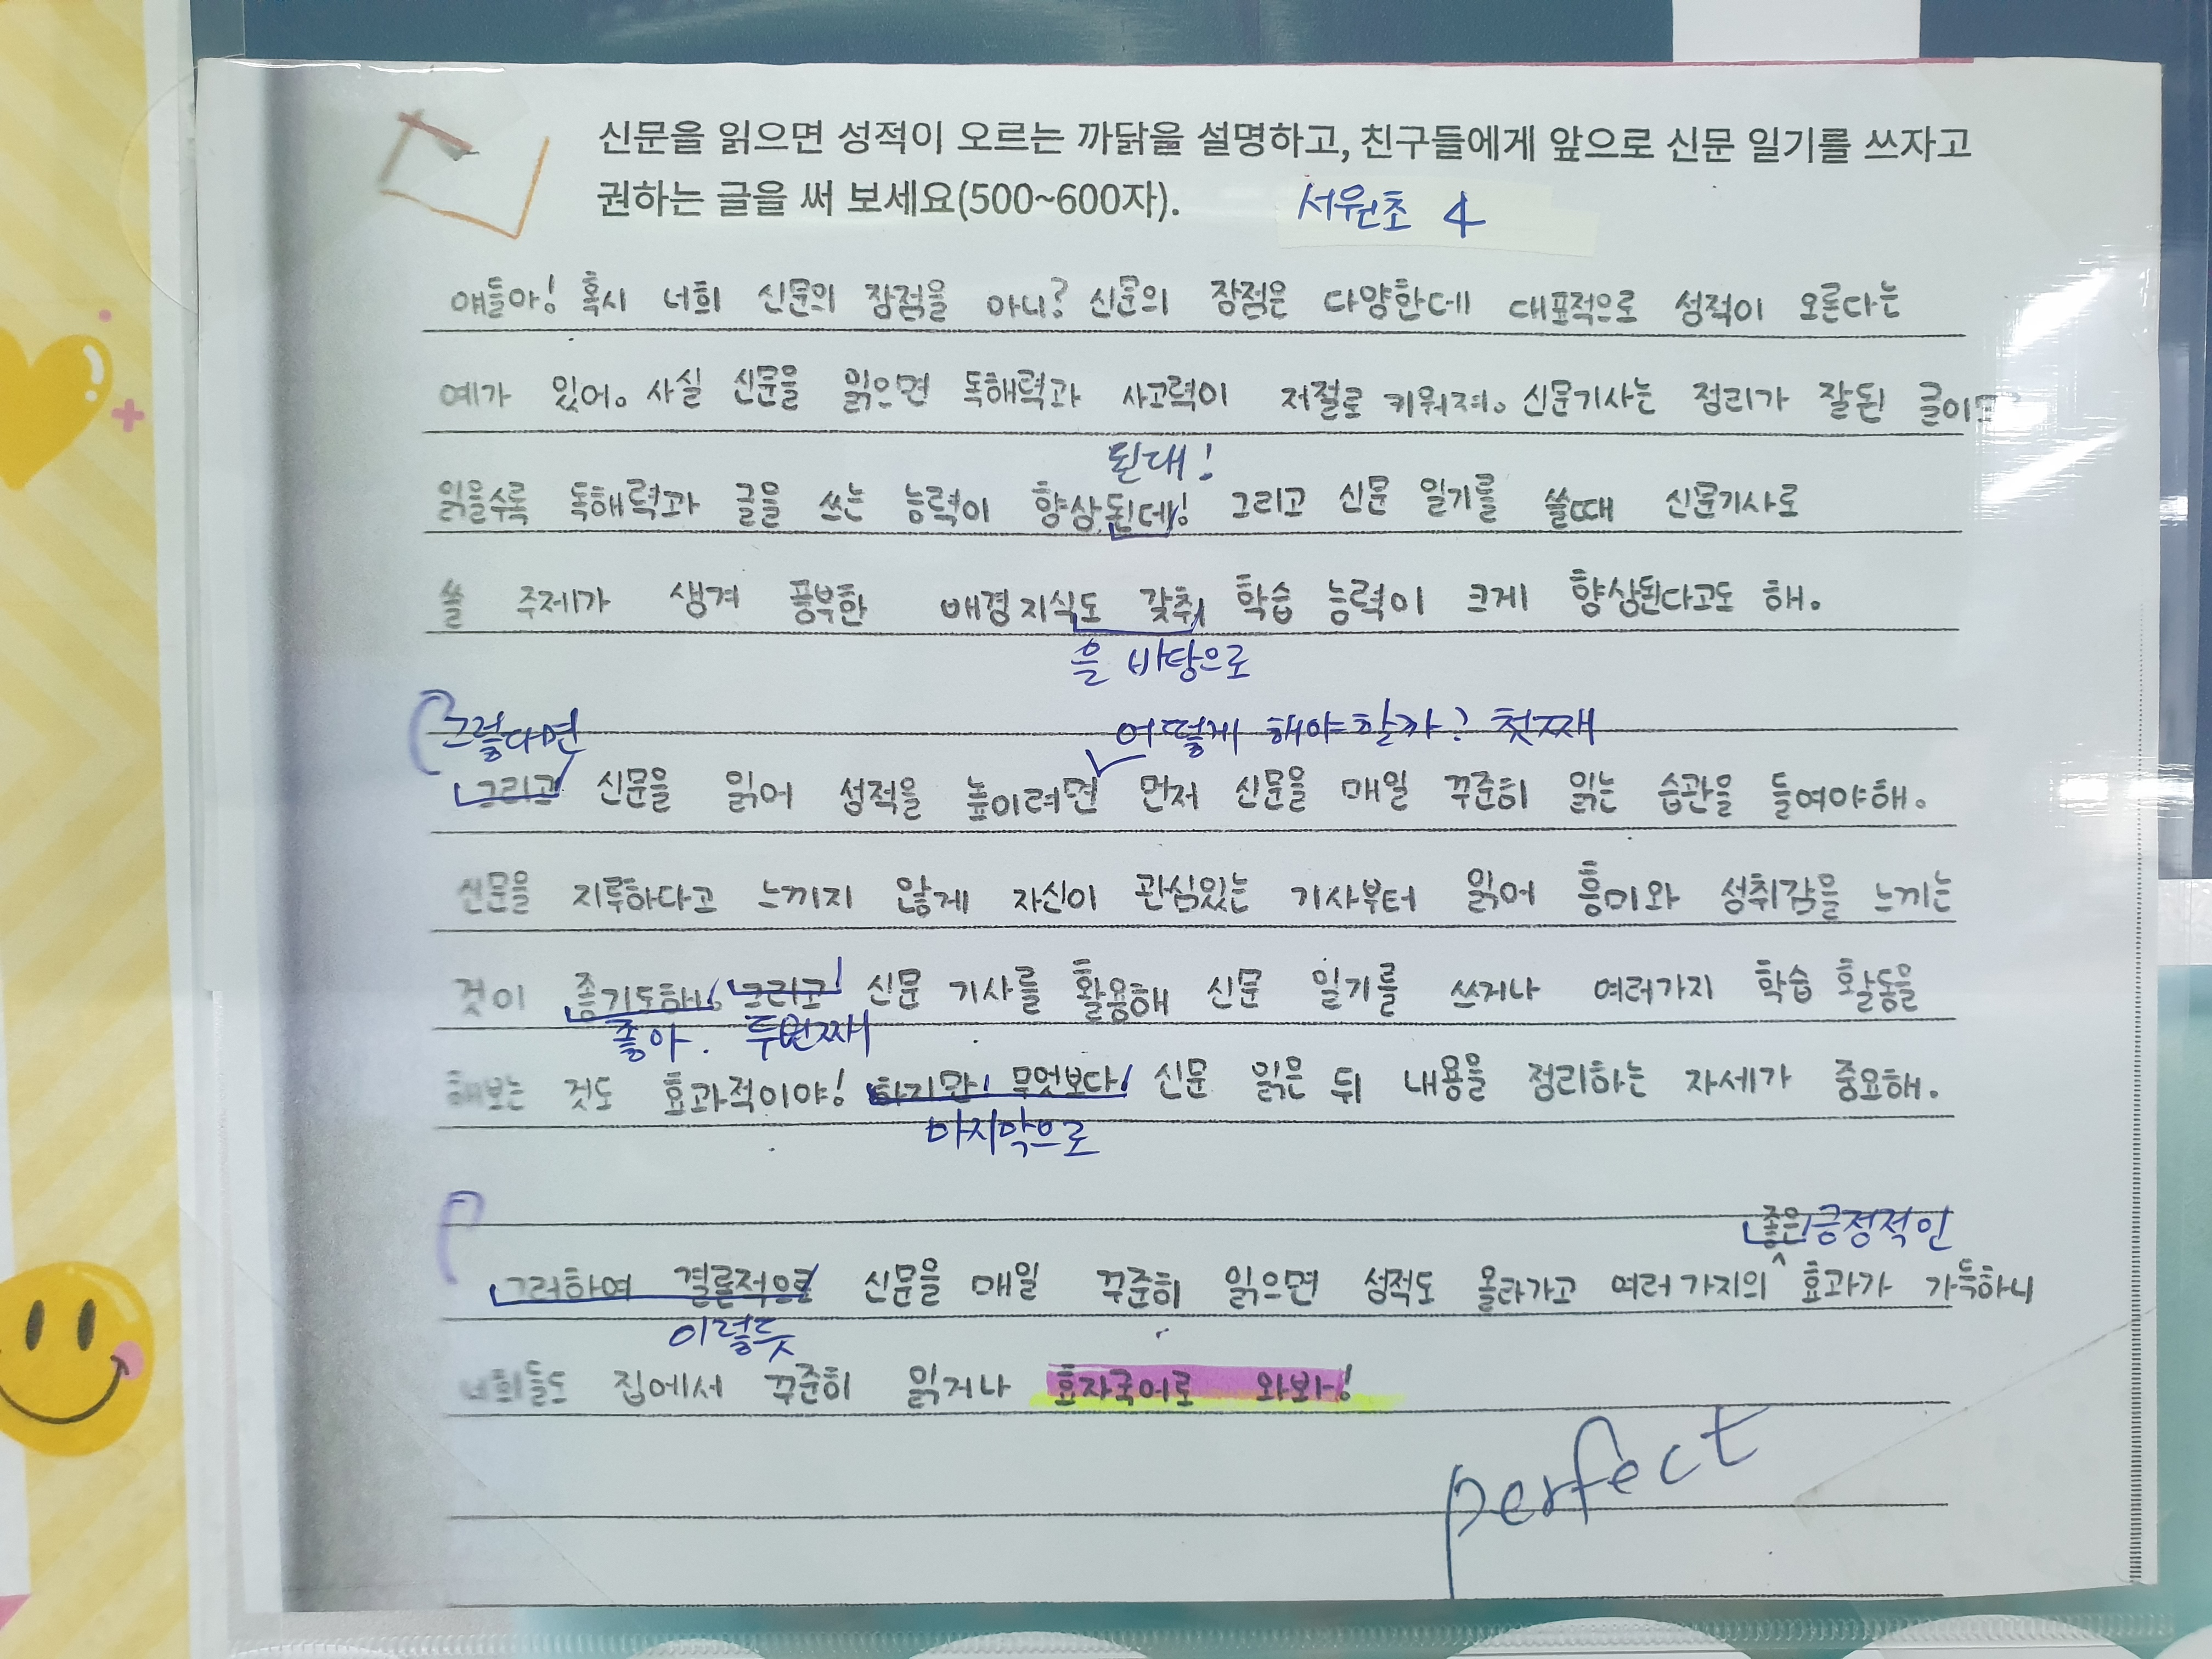 신문을 읽으면 성적이 오르는 까닭을 설명하고, 친구들에게 앞으로 신문 일기를 쓰자고
권하는 글을 써 보세요(500~600자).
서원초 4
얘들아! 혹시 너희 신문의 장점을 아니? 신문의 장점은 다양한데 대표적으로 성적이 오른다는
예가 있어. 사실 신문을 읽으면 독해력과 사고력이 저절로 키워져. 신문기사는 정리가 잘된 글이
된대!
읽을수록 독해력과 글을 쓰는 능력이 향상된데! 그리고 신문 일기를 쓸때 신문기사로
쓸 주제가 생겨 풍부한 배경지식도 갖춰 학습 능력이 크게 향상된다고도 해.
을 바탕으로
그렇다면 어떻게 해야할까? 첫째
그리고 신문을 읽어 성적을 높이려면 먼저 신문을 매일 꾸준히 읽는 습관을 들여야해.
신문을 지루하다고 느끼지 않게 자신이 관심있는 기사부터 읽어 흥미와 성취감을 느끼는
것이 좋기도해! 그리고 신문 기사를 활용해 신문 일기를 쓰거나 여러가지 학습 활동을
좋아. 두번째
해보는 것도 효과적이야! 하지만! 무엇보다 신문 읽은 뒤 내용을 정리하는 자세가 중요해.
마지막으로
좋은 긍정적인
그러하여 결론적으로 신문을 매일 꾸준히 읽으면 성적도 올라가고 여러가지의 효과가 가득하니
이렇듯
너희들도 집에서 꾸준히 읽거나 효자국어로 와봐!
perfect